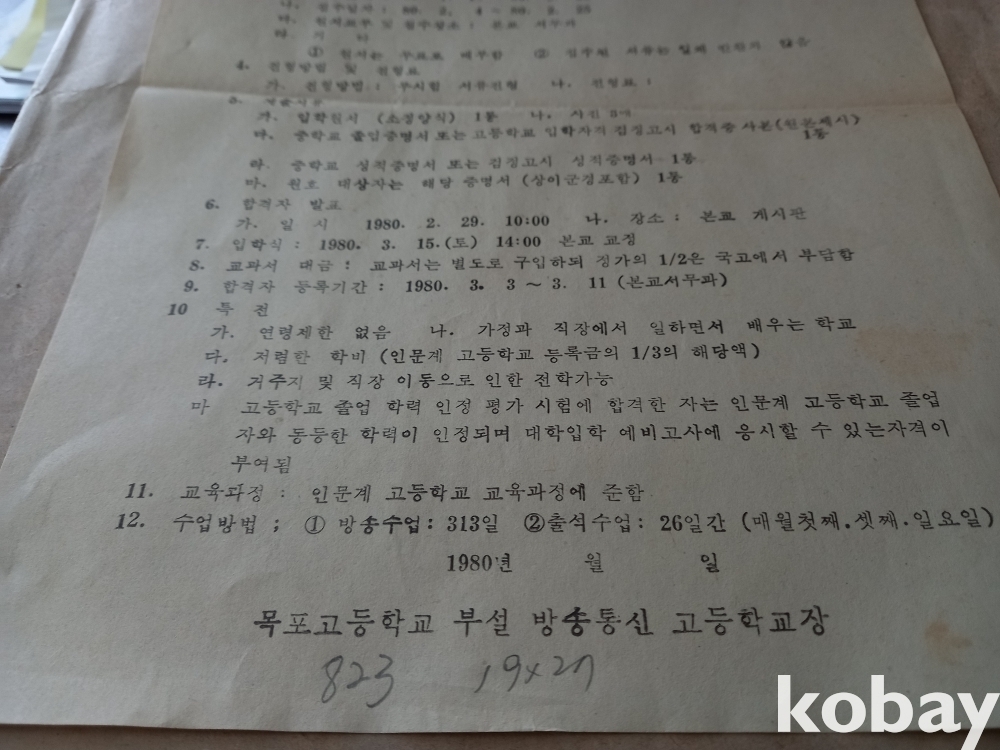 ① 원서는 무료로 배부함 ② 접수된 서류는 일체 반환치 않음
4. 전형방법 및 전형료
가. 전형방법 : 무시험 서류전형 나. 전형료 :
가. 입학원서 (소정양식) 1통 나. 사진 3매
다. 중학교 졸업증명서 또는 고등학교 입학자격 검정고시 합격증 사본(원본제시) 1통
라. 중학교 성적증명서 또는 검정고시 성적증명서 1통
마. 원호 대상자는 해당 증명서 (상이군경포함) 1통
6. 합격자 발표
가. 일 시 1980. 2. 29. 10:00 나. 장소 : 본교 게시판
7. 입학식 : 1980. 3. 15.(토) 14:00 본교 교정
8. 교과서 대금 : 교과서는 별도로 구입하되 정가의 1/2은 국고에서 부담함
9. 합격자 등록기간 : 1980. 3. 3 ~ 3. 11 (본교서무과)
10 특 전
가. 연령제한 없음 나. 가정과 직장에서 일하면서 배우는 학교
다. 저렴한 학비 (인문계 고등학교 등록금의 1/3의 해당액)
라. 거주지 및 직장 이동으로 인한 전학가능
마 고등학교 졸업 학력 인정 평가 시험에 합격한 자는 인문계 고등학교 졸업
자와 동등한 학력이 인정되며 대학입학 예비고사에 응시할 수 있는자격이
부여됨
11. 교육과정 : 인문계 고등학교 교육과정에 준함
12. 수업방법 ; ① 방송수업 : 313일 ②출석수업 : 26일간 (매월첫째.셋째.일요일)
1980년 월 일
목포고등학교 부설 방송통신 고등학교장
823 19x27
kobay